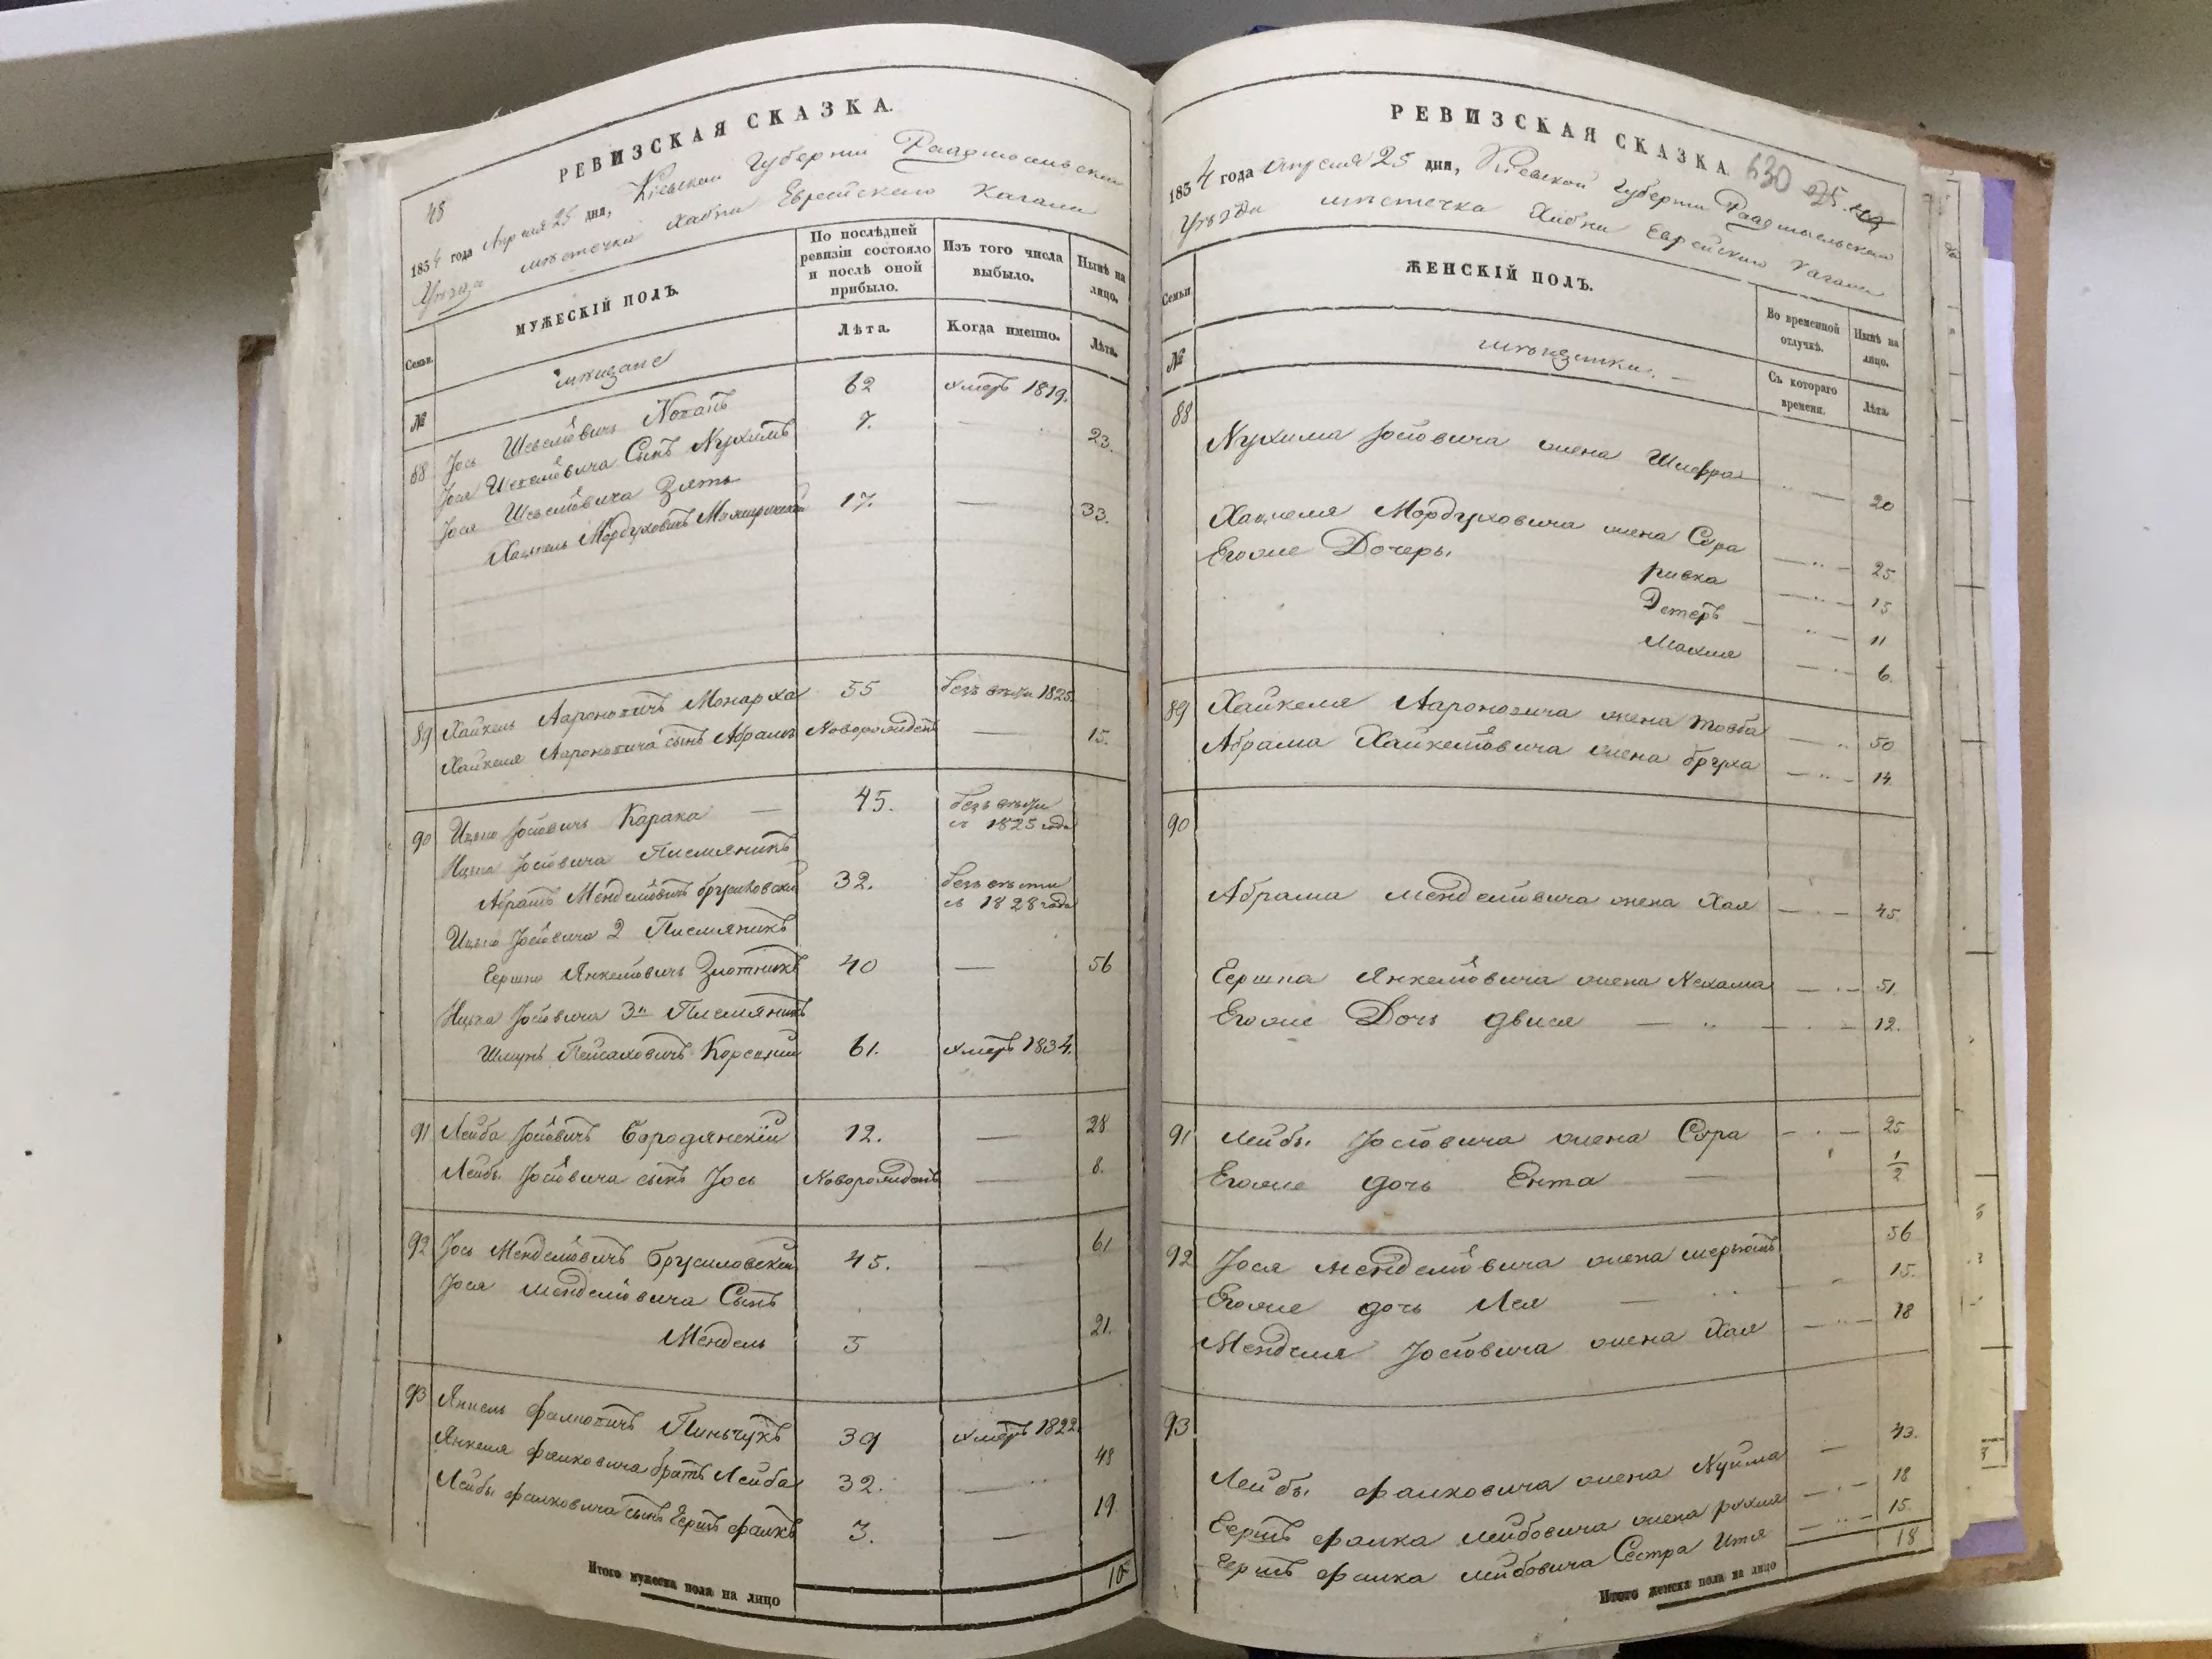 РЕВИЗСКАЯ СКАЗКА.
48
1834 года Апреля 25 дня, Кіевской Губерніи Радомысльскаго
Уѣзда мѣстечка Хабна Еврейскаго Кагала
Семьи.
МУЖЕСКІЙ ПОЛЪ.
По послѣдней ревизіи состояло и послѣ оной прибыло.
Изъ того числа выбыло.
Нынѣ на лицо.
№
мѣщане
Лѣта.
Когда именно.
Лѣта.
88 Іось Шевелевичъ 62 умеръ 1819.
Іося Шевелевича Сынъ Нухимъ 7. — 23.
Іося Шевелевича Зять
Хацкель Мордуховичъ 17. — 33.
89 Хайкель Аароновичъ Монарха 55 безъ вѣсти 1825.
Хайкеля Аароновича сынъ Абрамъ Новорожденъ — 15.
90 Ицько Іосевичъ Карака — 45. безъ вѣсти
съ 1825 года
Ицька Іосевича Племянникъ
Абрамъ Менделевичъ Брусиловскій 32. безъ вѣсти
съ 1828 года
Ицька Іосевича 2 Племянникъ
Гершко Янкелевичъ Злотникъ 40 — 56
Ицька Іосевича 3й Племянникъ
Шмуль Пейсаховичъ 61. умеръ 1834.
91 Лейба Іосевичъ Бородянскій 12. — 28
Лейбы Іосевича сынъ Іось Новорожденъ — 8.
92 Іось Менделевичъ Брусиловскій 45. — 61
Іося Менделевича Сынъ
Мендель 5 21.
93 Янкель Фалковичъ Пиньчукъ 39 умеръ 1822.
Янкеля Фалковича братъ Лейба 32. — 48
Лейбы Фалковича сынъ Гершъ Фалкъ 3. — 19.
Итого мужеска пола на лицо 10
РЕВИЗСКАЯ СКАЗКА.
630
1834 года Апреля 25 дня, Кіевской Губерніи Радомысльскаго
Уѣзда мѣстечка Хабна Еврейскаго Кагала
Семьи
ЖЕНСКІЙ ПОЛЪ.
Во временной отлучкѣ.
Нынѣ на лицо.
№
мѣщанки. —
Съ котораго времени.
Лѣта.
88
Нухима Іосевича жена Шифра — 20
Хацкеля Мордуховича жена Сура — 25.
Егоже Дочеры
Ривка — 15
Эстеръ — 11
Махля — 6.
89 Хайкеля Аароновича жена Товба — 50
Абрама Хайкелевича жена Бруха — 14.
90
Абрама Менделевича жена Хая — 45.
Гершка Янкелевича жена Нехама — 51.
Егоже Дочь Двися — 12.
91 Лейбы Іосевича жена Сура — 25
Егоже дочь Ента — 1/2
92 Іося Менделевича жена 56
Егоже дочь Лея — 15.
Менделя Іосевича жена Хая — 18
93
Лейбы Фалковича жена — 43.
Гершъ Фалка Лейбовича жена Рухля — 18
Гершъ Фалка Лейбовича Сестра Итя — 15.
Итого женска пола на лицо 18